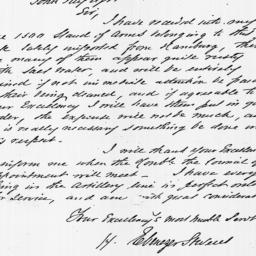 Sir,
I have received into my
1500 Stand of Arms belonging to the
lately imported from Hamburg, the
many of them appear quite rusty
with Salt water and will be entirely
if not immediate attention be paid
their being cleaned, and if agreeable to
Excellency I will have them put in good
order, the expence will not be much, and
is really necessary something be done in
respect.
I will thank your Excellency
inform me when the Honble the Council of
appointment will meet - I have every
thing in the Artillery line in perfect order
for Service, and am with great consideration
Your Excellency's most humble Servt
Ebenezer Stevens